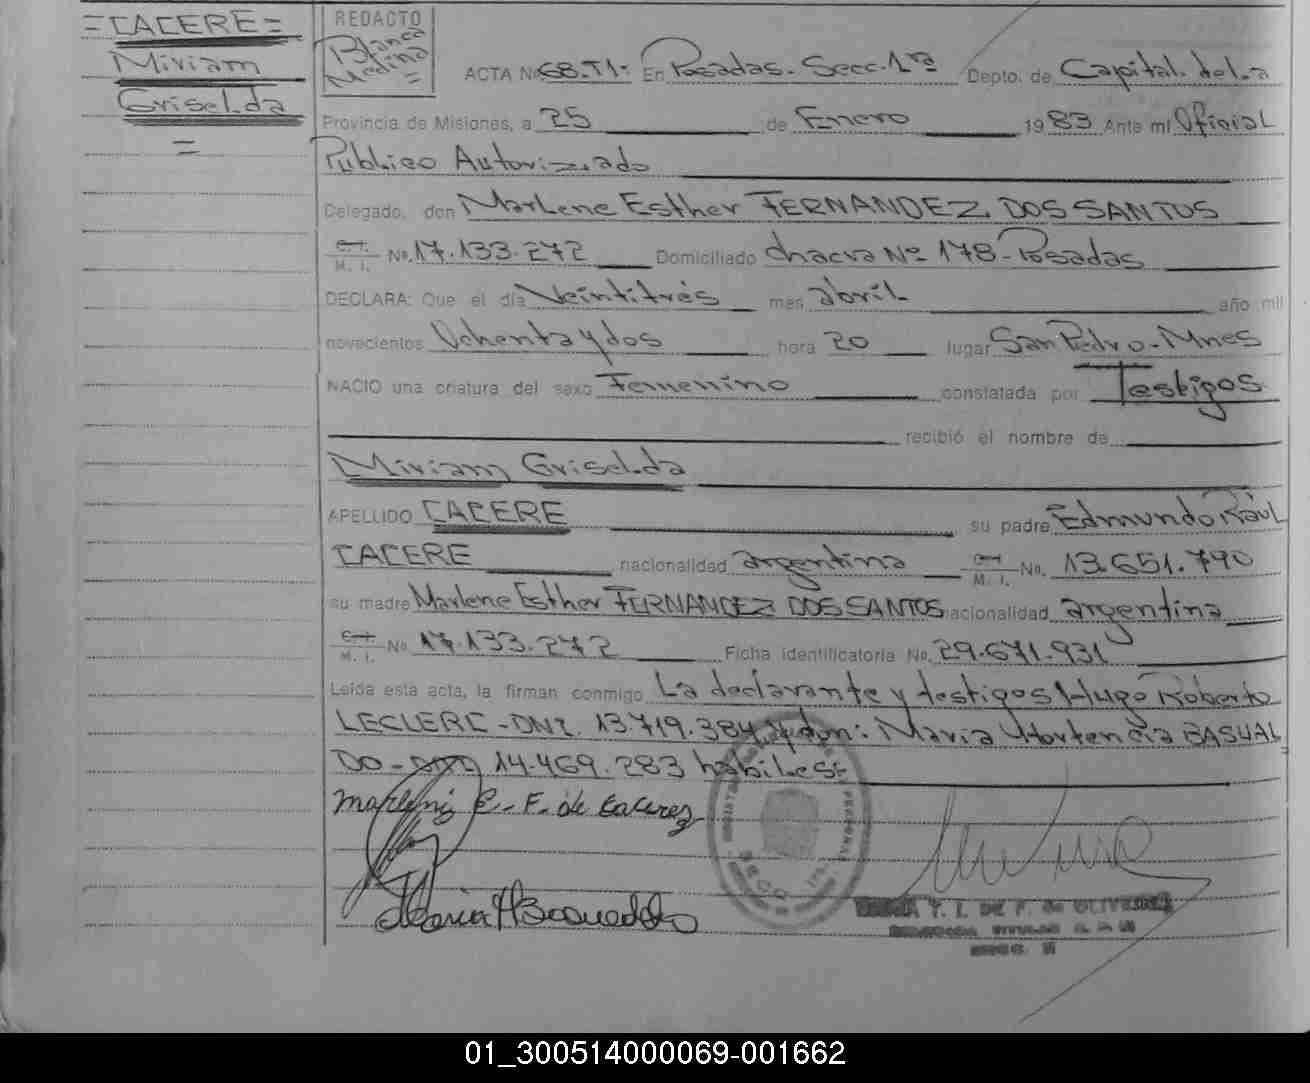 =CACERE=
Miriam
Griselda
=
REDACTO
Blanca
Medina
=
ACTA No 68.T1: En Posadas. Secc. 1ra Depto. de Capital. de La
Provincia de Misiones, a 25 de Enero 1983 Ante mi Oficial
Publico Autorizado
Delegado, don Marlene Esther FERNANDEZ DOS SANTOS
C. I. M. I. No. 17.133.272 Domiciliado chacra Nº 178-Posadas
DECLARA: Que el día Veintitrés mes abril año mil
novecientos Ochenta y dos hora 20 lugar San Pedro-Mnes
NACIO una criatura del sexo Femenino constatada por Testigos
recibió el nombre de
Miriam Griselda
APELLIDO CACERE su padre Edmundo Raul
CACERE nacionalidad argentina C. I. M. I. No. 13.651.790
su madre Marlene Esther FERNANDEZ DOS SANTOS nacionalidad argentina
C. I. M. I. No 17.133.272 Ficha identificatoria No. 29.671.931
Leída esta acta, la firman conmigo La declarante y testigos Hugo Roberto
LECLERC-DNI. 13.719.384 y don: Maria Hortencia BASUAL
DO-DNI 14.469.283 habiles=
Marleni E. F. de Caceres
Maria H Basualdo
Y. I. DE F. de OLIVEIRA
TITULAR
01_300514000069-001662